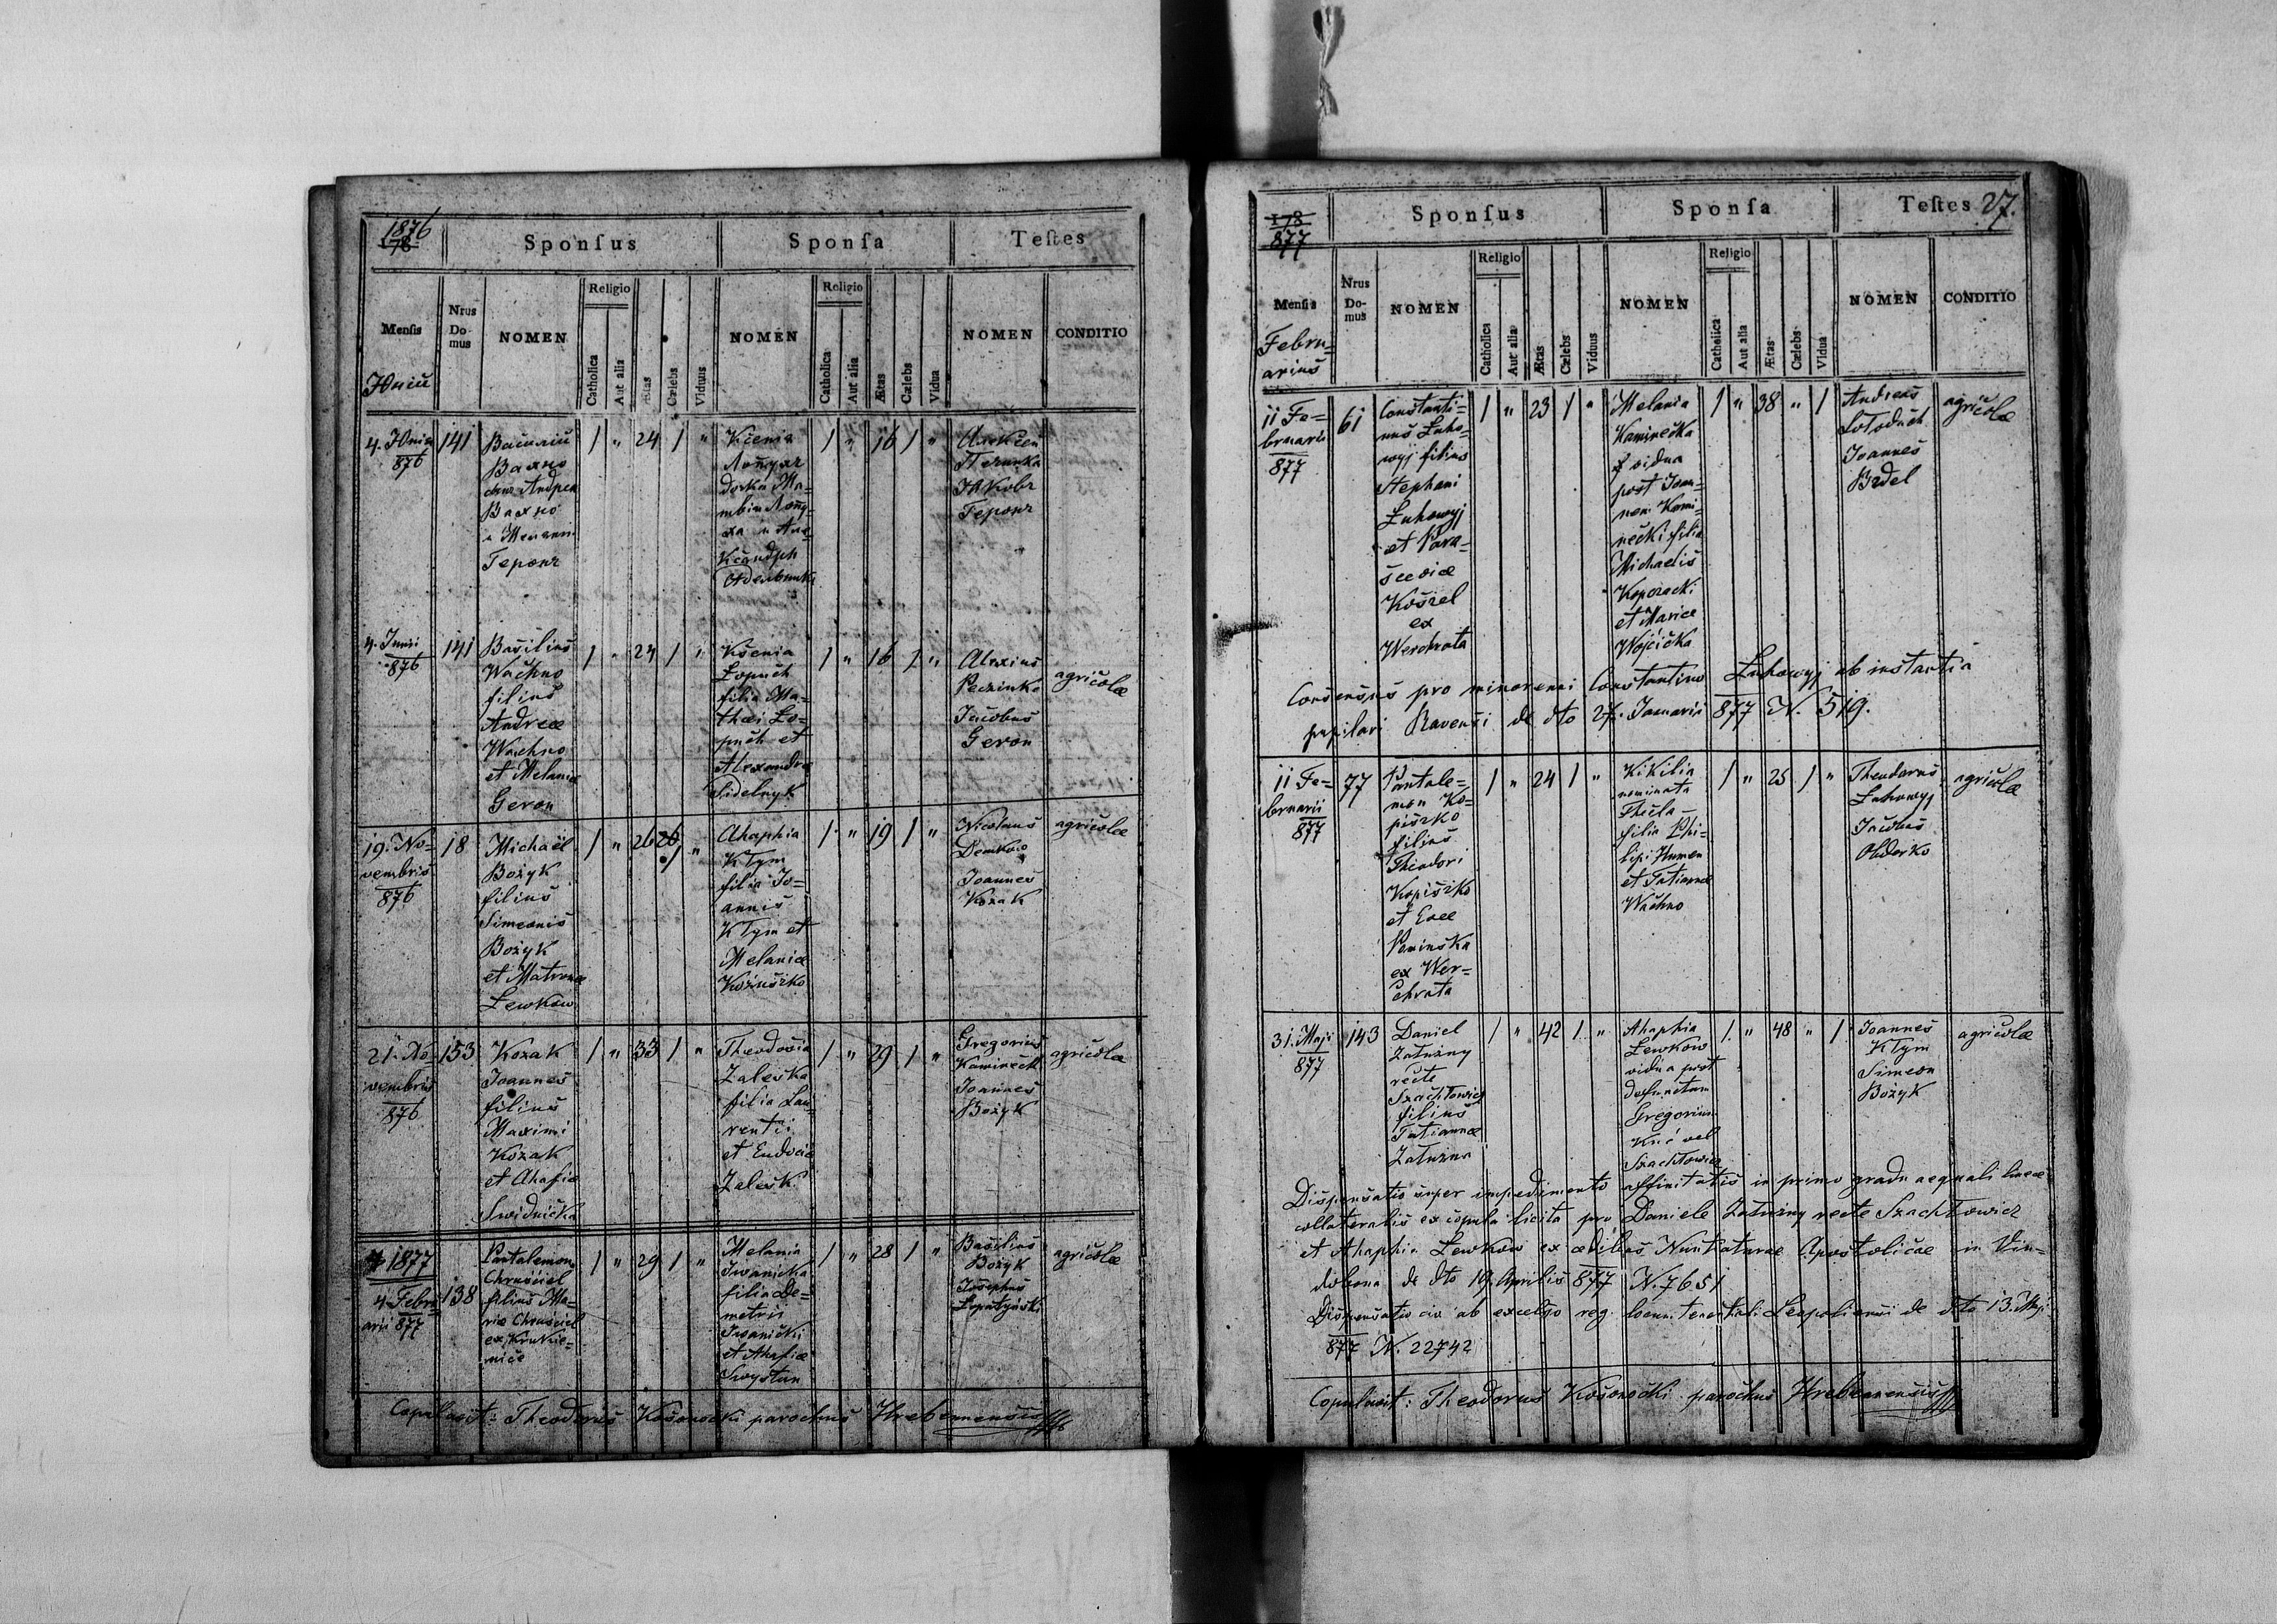 1876
78
Sponſus
Sponſa
Teſtes
Menſis
Nrus Do-mus
NOMEN
Religio
Catholica
Aut alia
Ætas
Cælebs
Viduus
NOMEN
Religio
Catholica
Aut alia
Ætas
Cælebs
Vidua
NOMEN
CONDITIO
Юній
4. Юнія
876
141
Василій
Вахно
Андрея
Вахно
Геронъ
1 " 24 1 "
Ксенія
Лопухъ
дочка Ма-
1 " 16 1 "
Яковъ
Геронъ
4. Junii
876
141
Basilius
Wachno
filius
Andreæ
Wachno
et Melaniæ
Geron
1 " 24 1 "
Ksenia
Łopuch
filia Ma-
thæi Ło-
puch et
Alexandræ
Sidelnyk
1 " 16 1 "
Alexius
Peczinka
Jacobus
Geron
agricolæ
19. No-
vembris
876
18
Michaël
Bożyk
filius
Simeonis
Bożyk
et Matronæ
Lewkow
1 " 26 26 1 "
Ahaphia
Kłym
filia Jo-
annis
Kłym et
Melaniæ
Kożuszko
1 " 19 1 "
Nicolaus
Demkow
Joannes
Kozak
agricolæ
21. No-
vembris
876
153
Kozak
Joannes
filius
Maximi
Kozak
et Ahafiæ
Swidnicka
1 " 33 1 "
Theodosia
Zaleska
filia Lau-
rentii
et Eudociæ
Zalesk.
1 " 29 1 "
Gregorius
Kaminecki
Joannes
Bożyk
agricolæ
1877
4. Febru-
arii 877
138
Pantalemon
Chruściel
filius Ma-
riæ Chruściel
ex Krukie-
nice
1 " 29 1 "
Melania
Iwanicka
filia De-
metrii
Iwanicki
et Ahafiæ
Swystun
1 " 28 1 "
Basilius
Bożyk
Josephus
Łopatyński
agricolæ
Copulavit: Theodorus Kosonocki parochus Hrebennensis
178
877
Sponſus
Sponſa
Teſtes 27.
Menſis
Nrus Do-mus
NOMEN
Religio
Catholica
Aut alia
Ætas
Cælebs
Viduus
NOMEN
Religio
Catholica
Aut alia
Ætas
Cælebs
Vidua
NOMEN
CONDITIO
Febru-
arius
11 Fe-
bruarii
877
61
Constanti-
nus Łuho-
wyj filius
Stephani
Łuhowyj
et Para-
sceviæ
Kosziel
ex
Werchrata
1 " 23 1 "
Melania
Kaminecka
vidua
post Joan-
nem Kami-
necki filia
Michaelis
Koporacki
et Mariæ
Wojcicka
1 " 38 " 1
Andreas
Joannes
Bzdel
agricolæ
Consensus pro minorenni Constantino Łuhowyj ab instantia
pupilari Ravensi de dto 27. Januarii 877 N. 519.
11 Fe-
bruarii
877
77
Pantale-
mon Ko-
piszko
filius
Theodori
Kopiszko
et Evæ
Peninska
ex Wer-
chrata
1 " 24 1 "
Kikilia
nominata
Thecla
filia Phi-
lipi Humen
et Tatiannæ
Wachno
1 " 25 1 "
Theodorus
Łuhowyj
Jacobus
Okderko
agricolæ
31. Maji
877
143
Daniel
Załużny
recte
Szachłowicz
filius
Tatiannæ
Załużna
1 " 42 1 "
Ahaphia
Lewkow
vidua post
defunctum
Gregorium
Kuć vel
Szachłowicz
1 " 48 " 1
Joannes
Kłym
Simeon
Bożyk
agricolæ
Dispensatio super impedimento affinitatis in primo gradu aequali lineæ
collateralis ex copula licita pro Daniele Załużny recte Szachłowicz
et Ahaphia Lewkow ex ædibus Nuntiaturæ Apostolicæ in Vin-
dobona de dto 19. Aprilis 877 N. 7651
Dispensatio ab excelso reg. Leopoliensi de dto 13. Maji
877 N. 22742
Copulavit: Theodorus Kosonocki parochus Hrebennensis